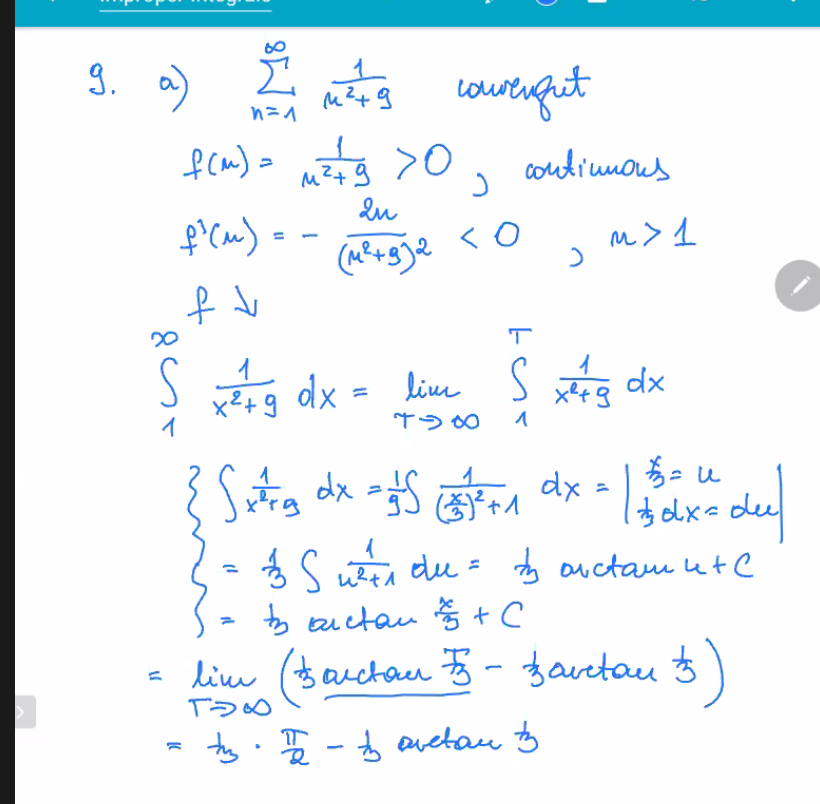 Improper integrals
9. a) ∞ Σ n=1 1/(n²+9) convergent
f(n) = 1/(n²+9) > 0, continuous
f'(n) = - 2n/(n²+9)² < 0, n > 1
f ↘
∞ ∫ 1 1/(x²+9) dx = lim T→∞ T ∫ 1 1/(x²+9) dx
{ ∫ 1/(x²+9) dx = 1/9 ∫ 1/((x/3)²+1) dx = | x/3 = u
1/3 dx = du |
= 1/3 ∫ 1/(u²+1) du = 1/3 arctan u + C
= 1/3 arctan x/3 + C
= lim T→∞ (1/3 arctan T/3 - 1/3 arctan 1/3)
= 1/3 · π/2 - 1/3 arctan 1/3